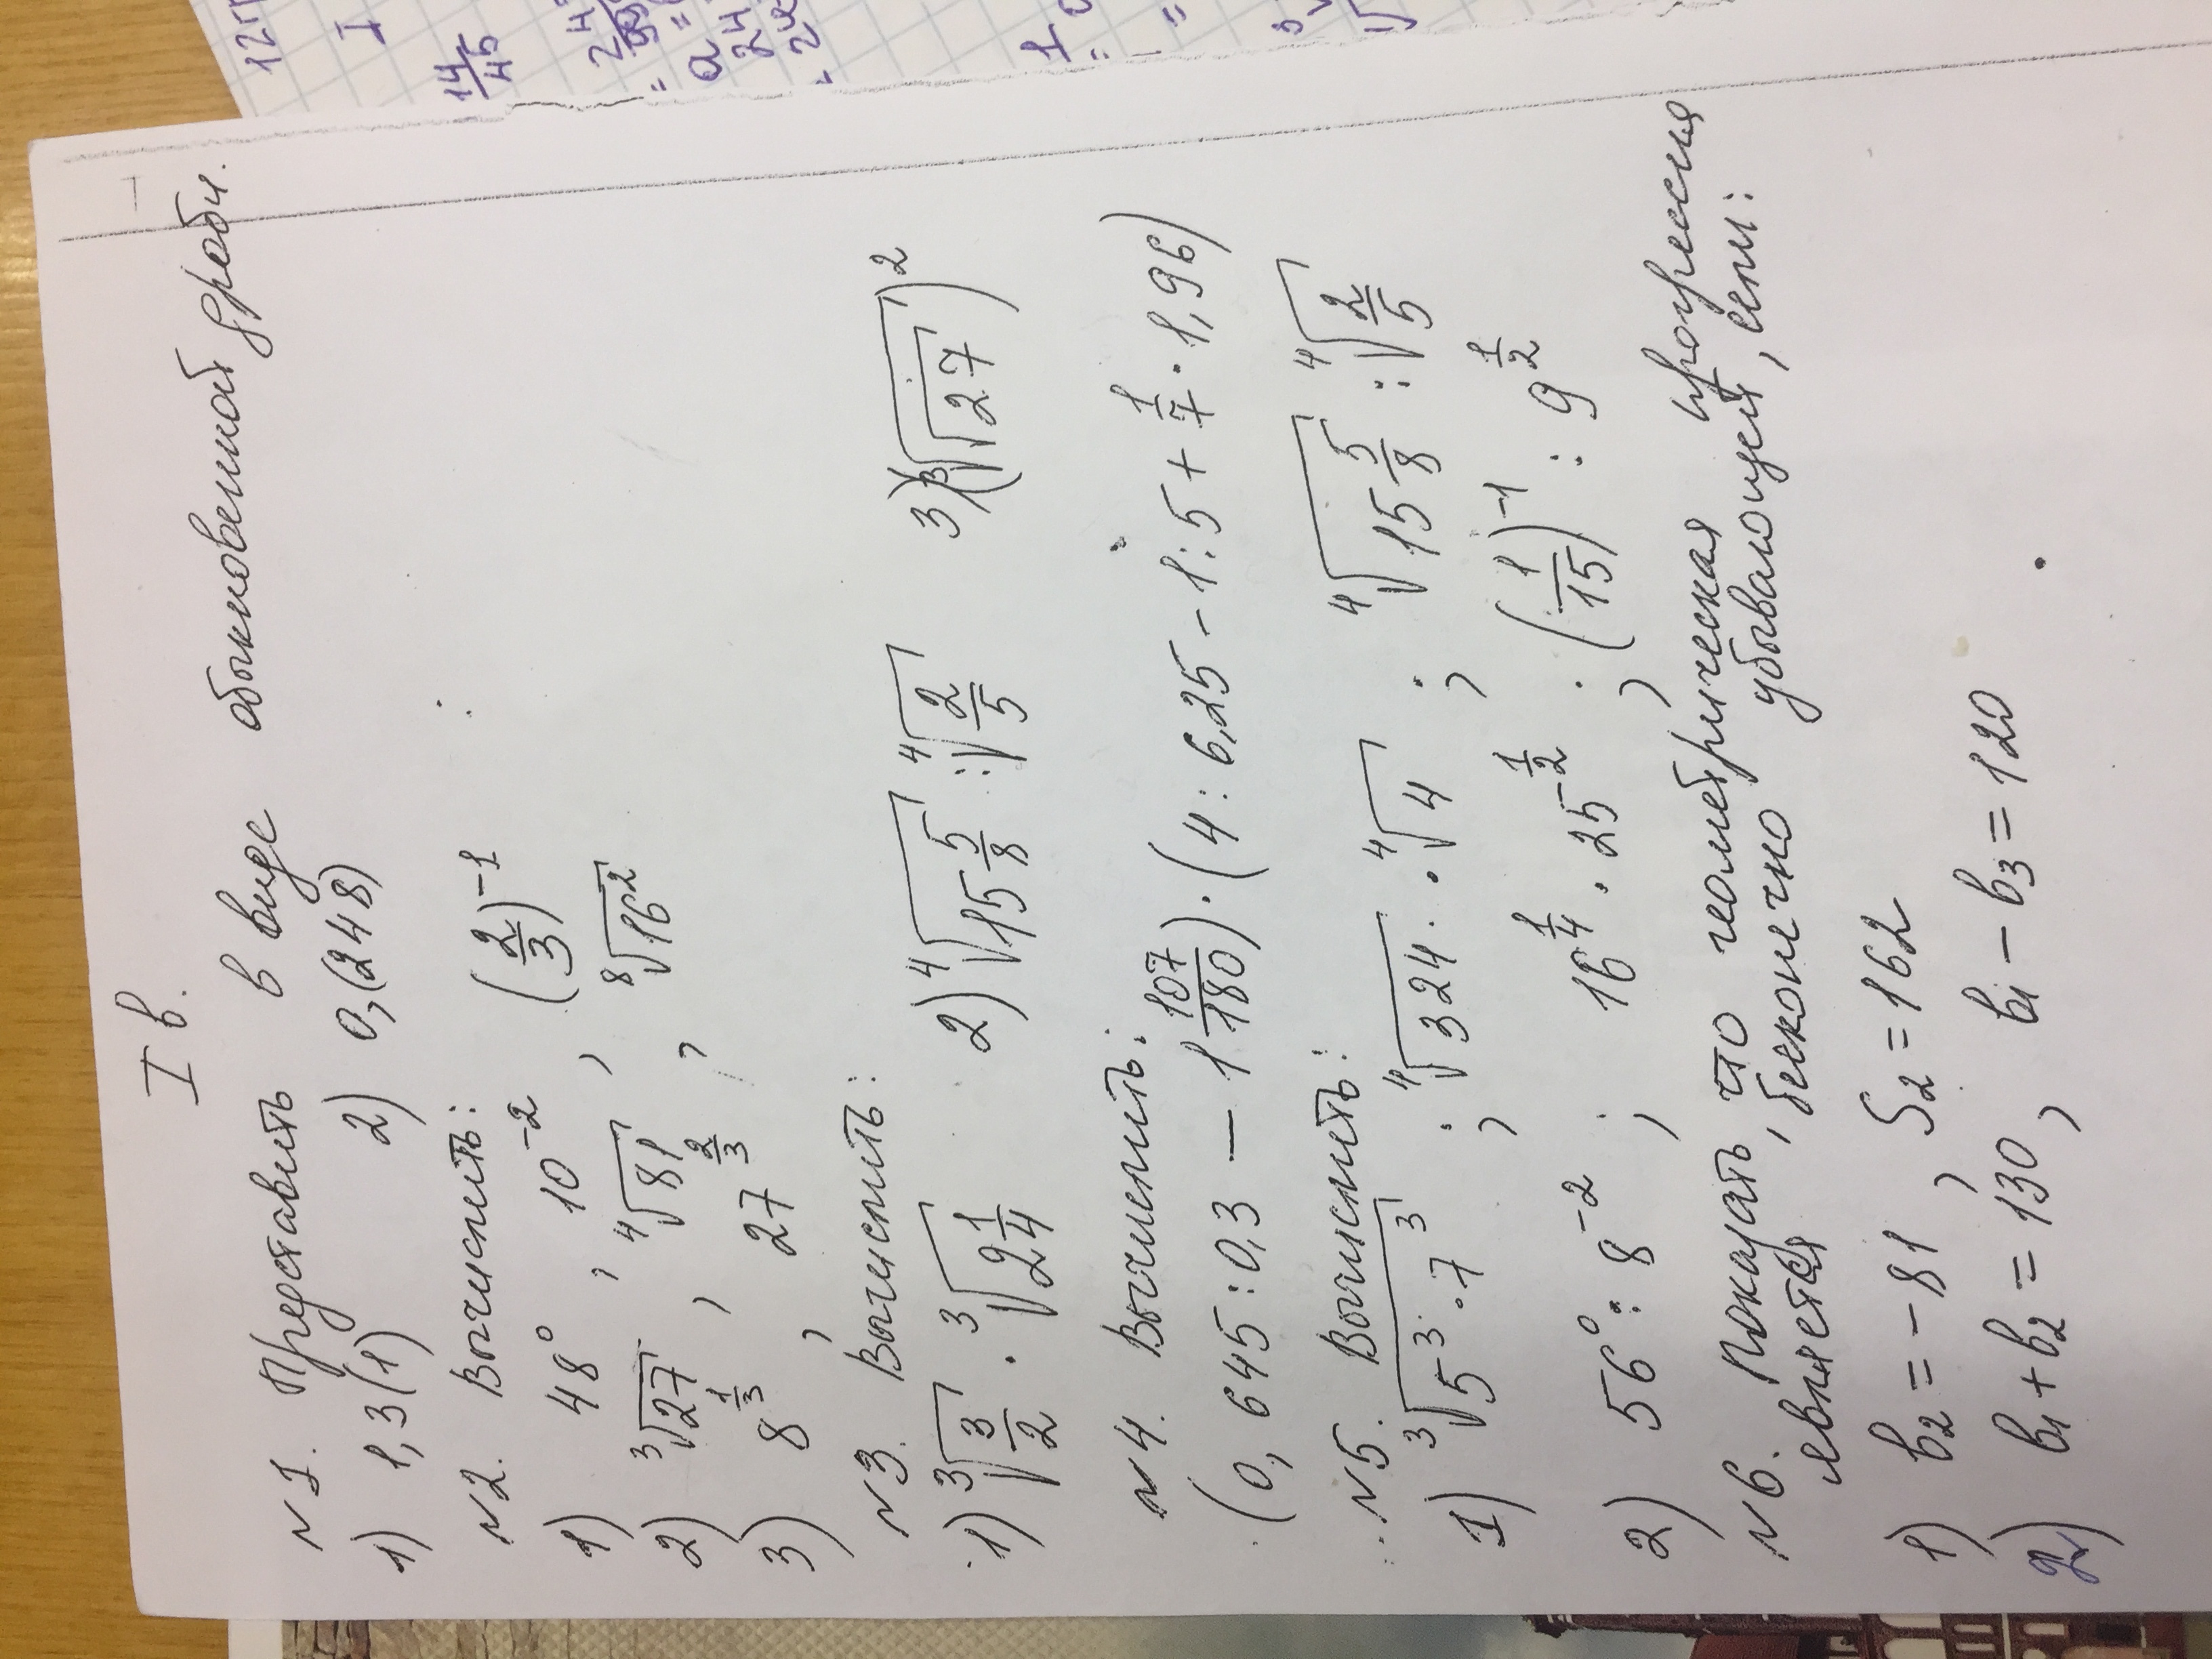 I в.
№1. Представить в виде обыкновенной дроби.
1) 1,3(1) 2) 0,(248)
№2. Вычислить:
1) 48⁰, 10⁻², (2/3)⁻¹
2) ∛27, ⁴√81, ⁸√16²
3) 8^(1/3), 27^(2/3)
№3. Вычислить:
1) ∛(3/2) · ∛(2 1/4) 2) ⁴√(15 5/8) : ⁴√(2/5) 3) (∛√27)²
№4. Вычислить:
(0,645 : 0,3 − 1 107/180) · (4 : 6,25 − 1 : 5 + 1/7 · 1,96)
№5. Вычислить:
1) ∛(5³ · 7³) ; ⁴√324 · ⁴√4 ; ⁴√(15 5/8) : ⁴√(2/5)
2) 56⁰ : 8⁻² ; 16^(1/4) · 25^(−1/2) ; (1/15)⁻¹ : 9^(1/2)
№6. Показать, что геометрическая прогрессия
является бесконечно убывающей, если:
1) b₂ = −81, S₂ = 162
2) b₁ + b₂ = 130, b₁ − b₃ = 120
12
I
14/45
24